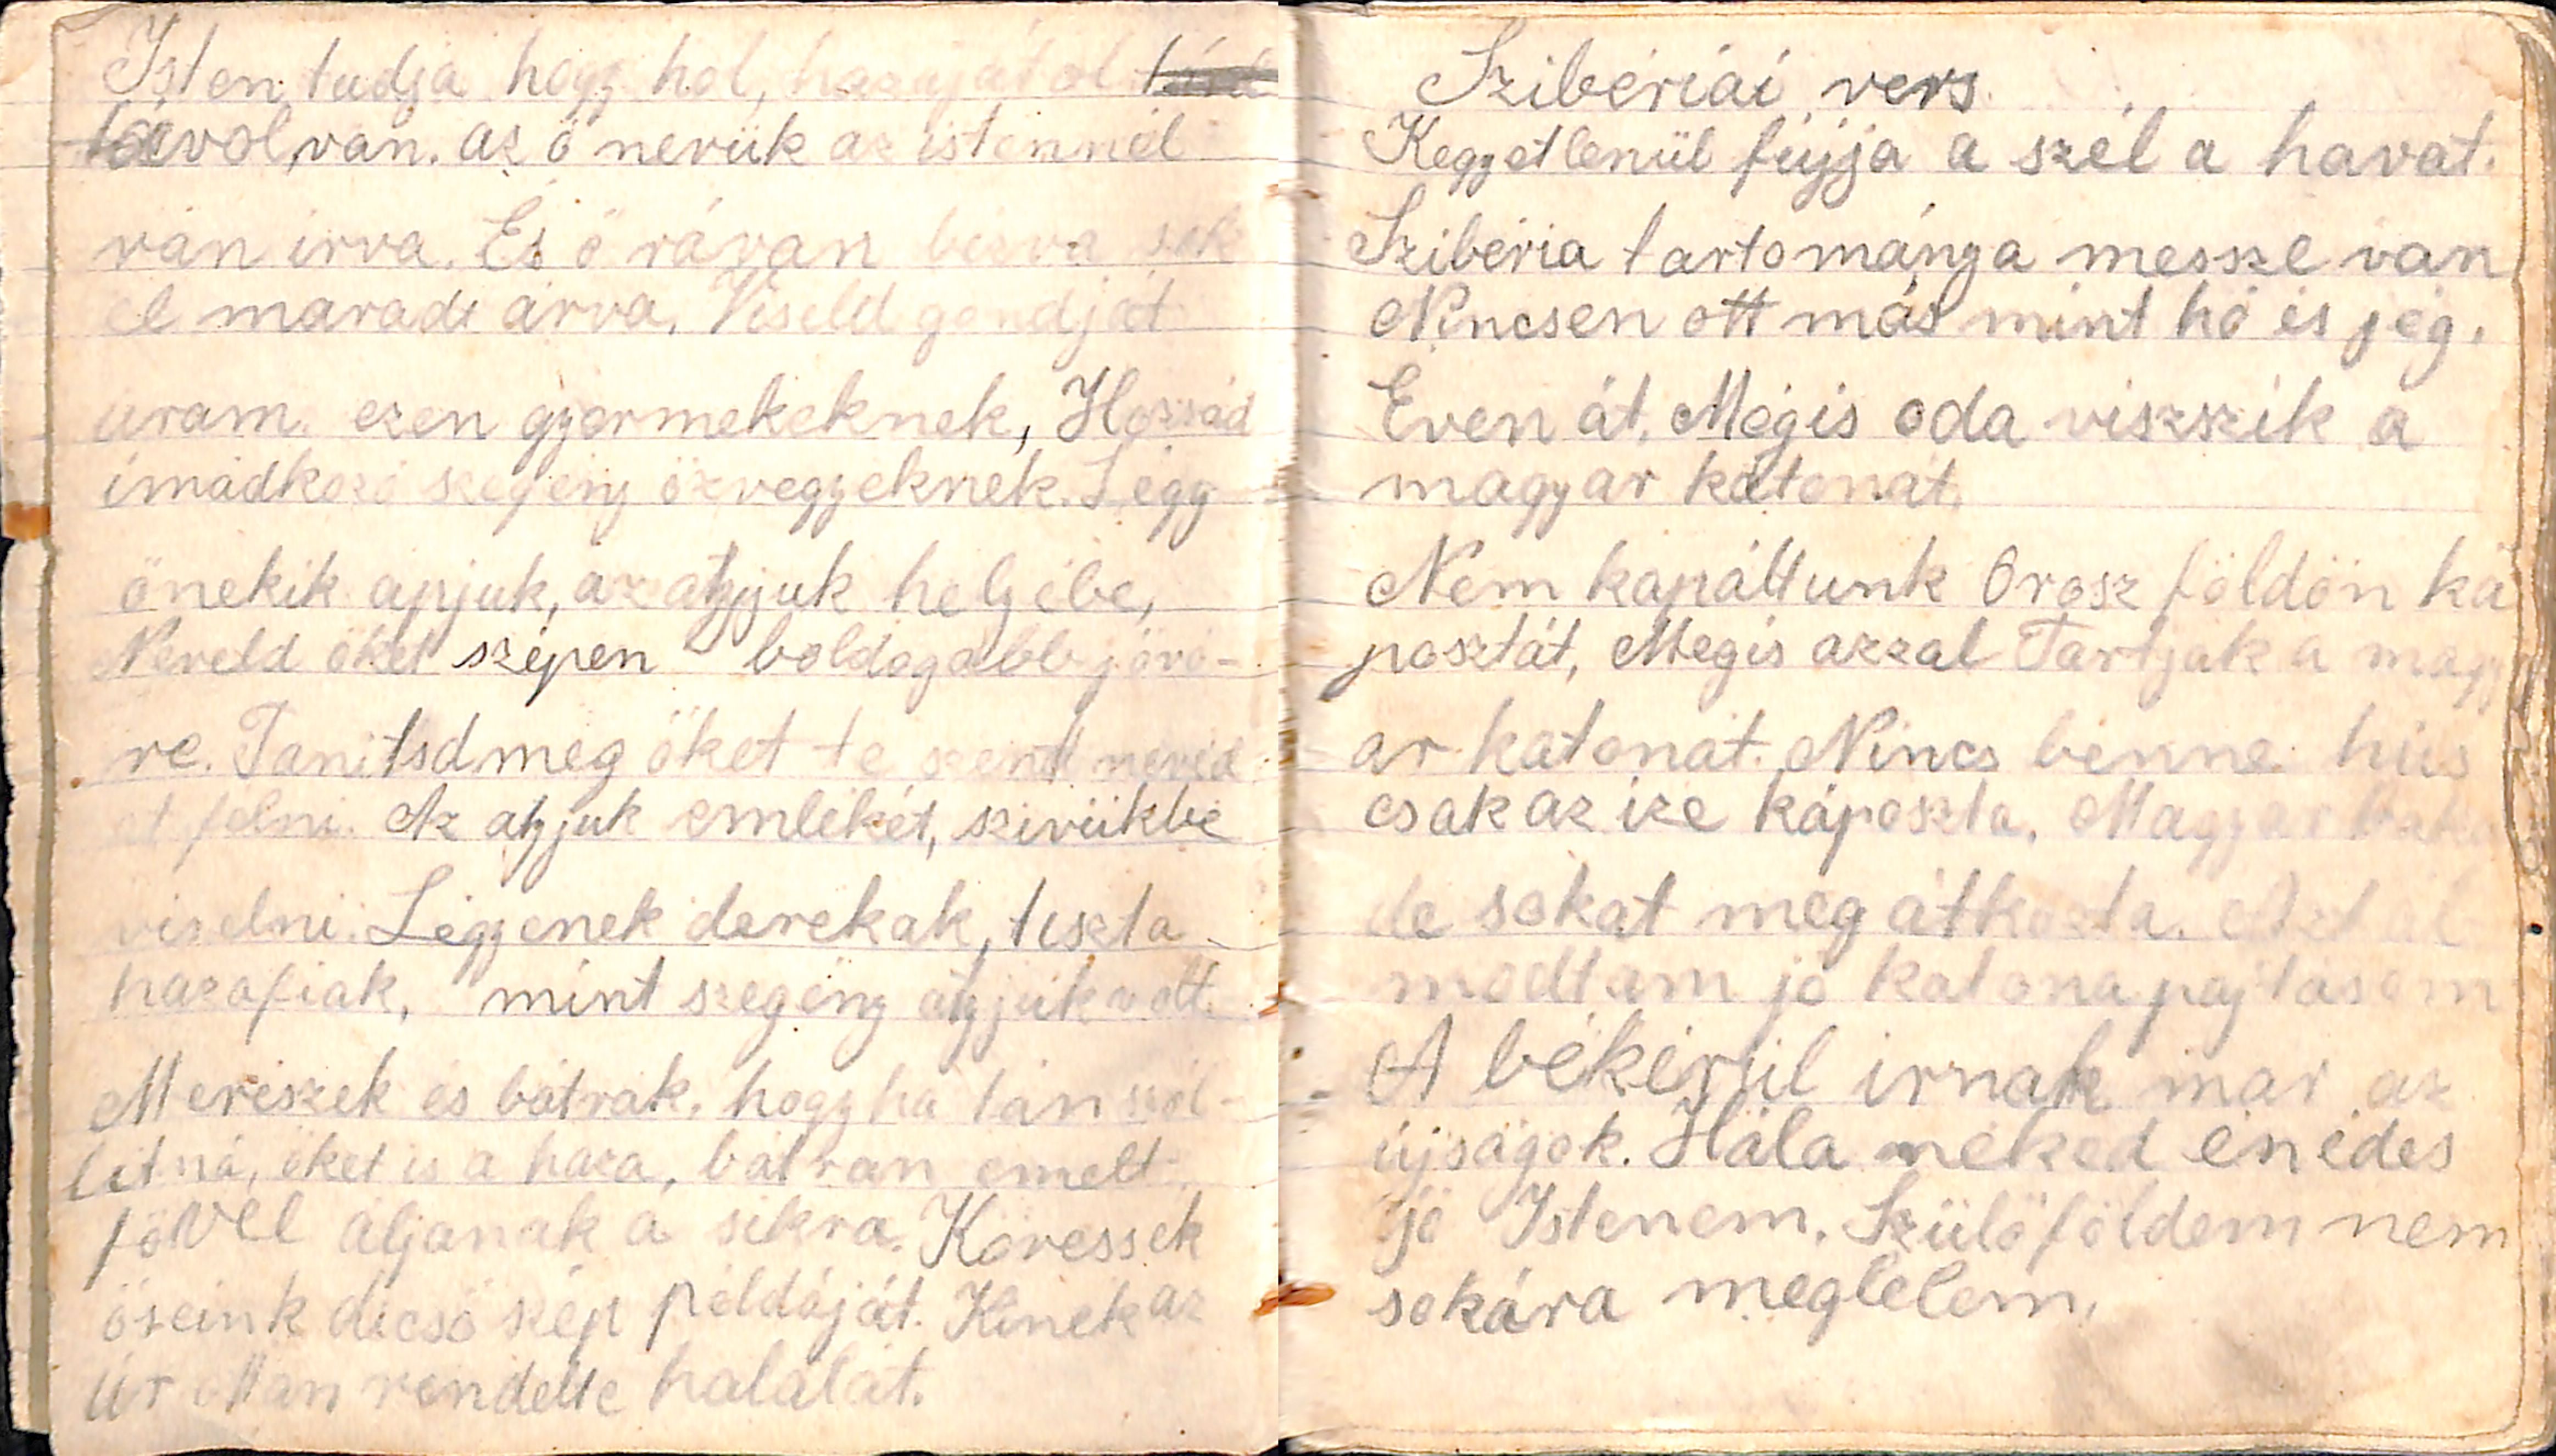 Isten tudja hogy hol, hazájától
távol van. az ő nevük az istennél
van irva. És ő rávan bizva sok
el maradt árva. Viseld gondját
uram ezen gyermekeknek, Hozzád
imádkozó szegény özvegyeknek. Légy
önekik apjuk, az atyjuk helyébe,
Neveld őket szépen boldogabb jövő-
re. Tanitsd meg őket te szent neved
et félni. Az atyjuk emlékét, szivükbe
viselni. Légyenek derekak, tiszta
hazafiak, mint szegény atyjuk volt.
Merészek és bátrak, hogy ha tán szól-
litná, őket is a haza, bátran emelt-
fővel áljanak a sikra. Kövessék
őseink dicső szép példáját. Kinek az
Úr ottan rendelte halálát.
Szibériai vers
Kegyetlenül fújja a szél a havat.
Szibéria tartománya messze van
Nincsen ott más mint hó és jég.
Éven át. Mégis oda viszszik a
magyar katonát.
Nem kapáltunk Orosz földön ká
posztát, Mégis azzal Tartják a magy
ar katonát. Nincs benne hús
csak az ize káposzta. Magyar baka
de sokat meg átkozta. Azt ál
modtam jó katona pajtásom
A békérül irnak már az
újságok. Hála néked én édes
jó Istenem. Szülőföldem nem
sokára meglelem.